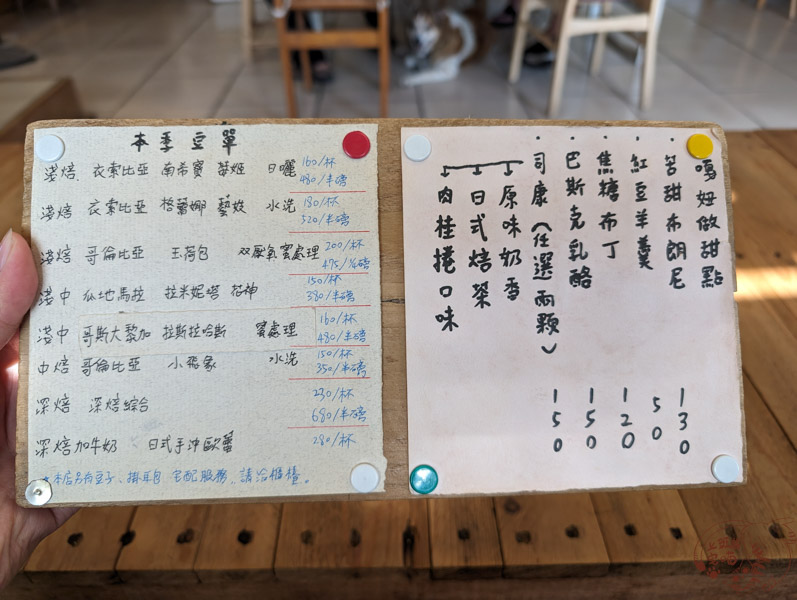 本季豆單
淺焙 衣索比亞 南希寶 藝姬 日曬 160/杯 480/半磅
淺焙 衣索比亞 格蕾娜 藝妓 水洗 180/杯 520/半磅
淺焙 哥倫比亞 玉荷包 双厭氧蜜處理 200/杯 475/¼磅
淺中 瓜地馬拉 拉米妮塔 花神 150/杯 380/半磅
淺中 哥斯大黎加 拉斯拉哈斯 蜜處理 160/杯 480/半磅
中焙 哥倫比亞 小飛象 水洗 150/杯 350/半磅
深焙 深焙綜合 230/杯 680/半磅
深焙加牛奶 日式手沖歐蕾 280/杯
本店另有豆子、掛耳包 宅配服務,請洽櫃檯。
嘎妞做甜點
苦甜布朗尼 130
紅豆羊羹 50
焦糖布丁 120
巴斯克乳酪 150
司康(任選兩顆) 150
原味奶香
日式焙茶
肉桂捲口味